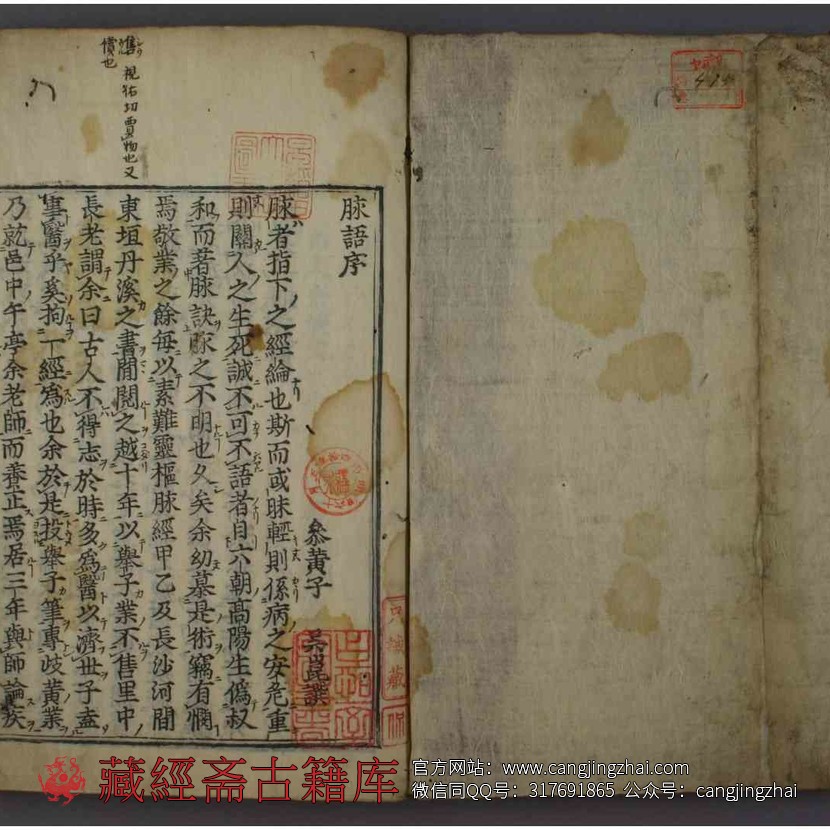 脉語序
叅黃子 吳崑譔
脉者指下之經綸也斯而或昧輕則係病之安危重
則關人之生死誠不可不語者自六朝高陽生僞叔
和而著脉訣脉之不明也久矣余幼慕是術竊有憫
焉敬業之餘每以素難靈樞脉經甲乙及長沙河間
東垣丹溪之書閒閱之越十年以舉子業不售里中
長老謂余曰古人不得志於時多爲醫以濟世子盍
事醫乎奚拘一經爲也余於是投舉子筆專岐黃業
乃就邑中午亭余老師而養正焉居三年與師論疾
售 視祐切賣物也又
價也
藏經斋古籍库
官方网站：www.cangjingzhai.com
微信同QQ号：317691865 公众号：cangjingzhai